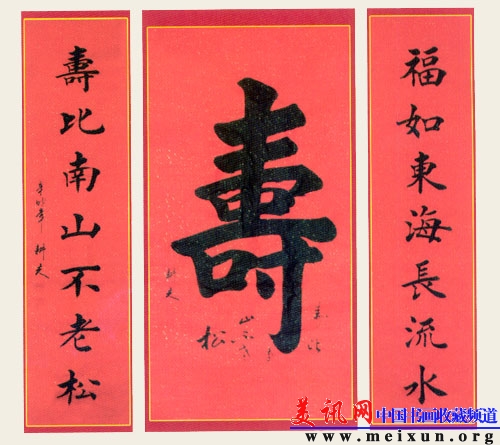 福如東海長流水
壽
松
壽比南山不老松
耕夫
美讯网 中国书画收藏频道
www.meixun.org